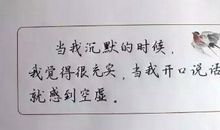 当我沉默的时候，
我觉得很充实，当我开口说话
就感到空虚。